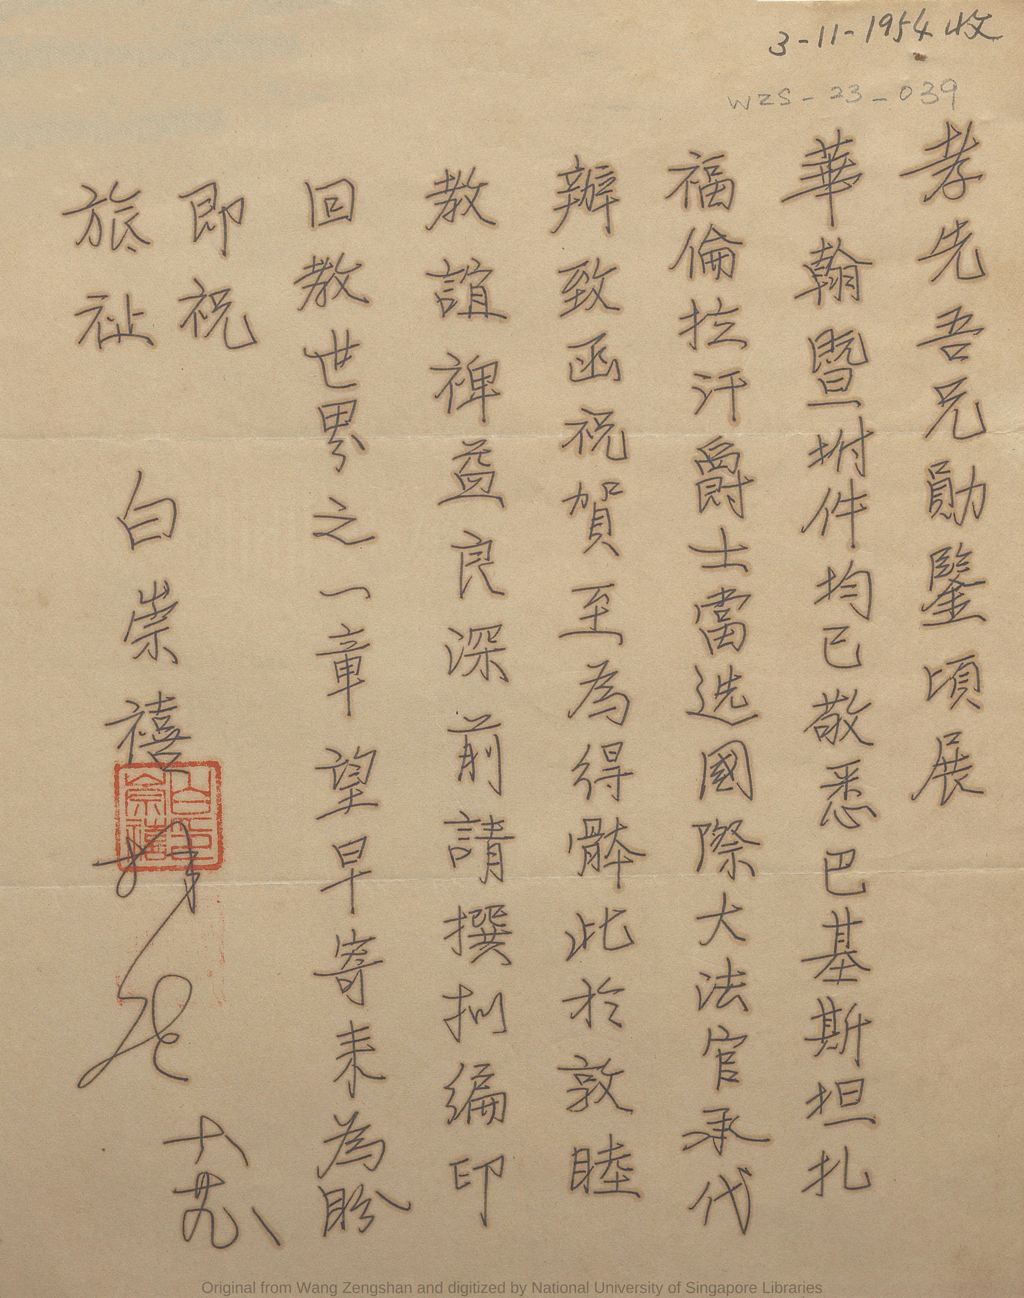 3-11-1954 收
WZS-23-039
孝先吾兄勛鑒頃展
華翰暨坿件均已敬悉巴基斯坦扎
福倫拉汗爵士當选國際大法官承代
辦致函祝賀至為得骵此於敦睦
教誼裨益良深前請撰拟編印
回教世累之一章望早寄来為盼
即祝
旅祉
白崇禧
十
白崇禧印
Original from Wang Zengshan and digitized by National University of Singapore Libraries